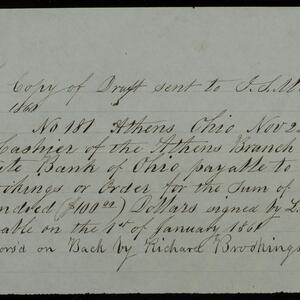 Copy of Draft sent to J. S. M
1860
No 181 Athens, Ohio, Nov 2
Cashier of the Athens Branch
ate Bank of Ohio, payable to
ookings or order for the Sum of
undred ($100.00) Dollars signed by L.
able on the 1st of January 1861
ors'd on Back by Richard Brookings